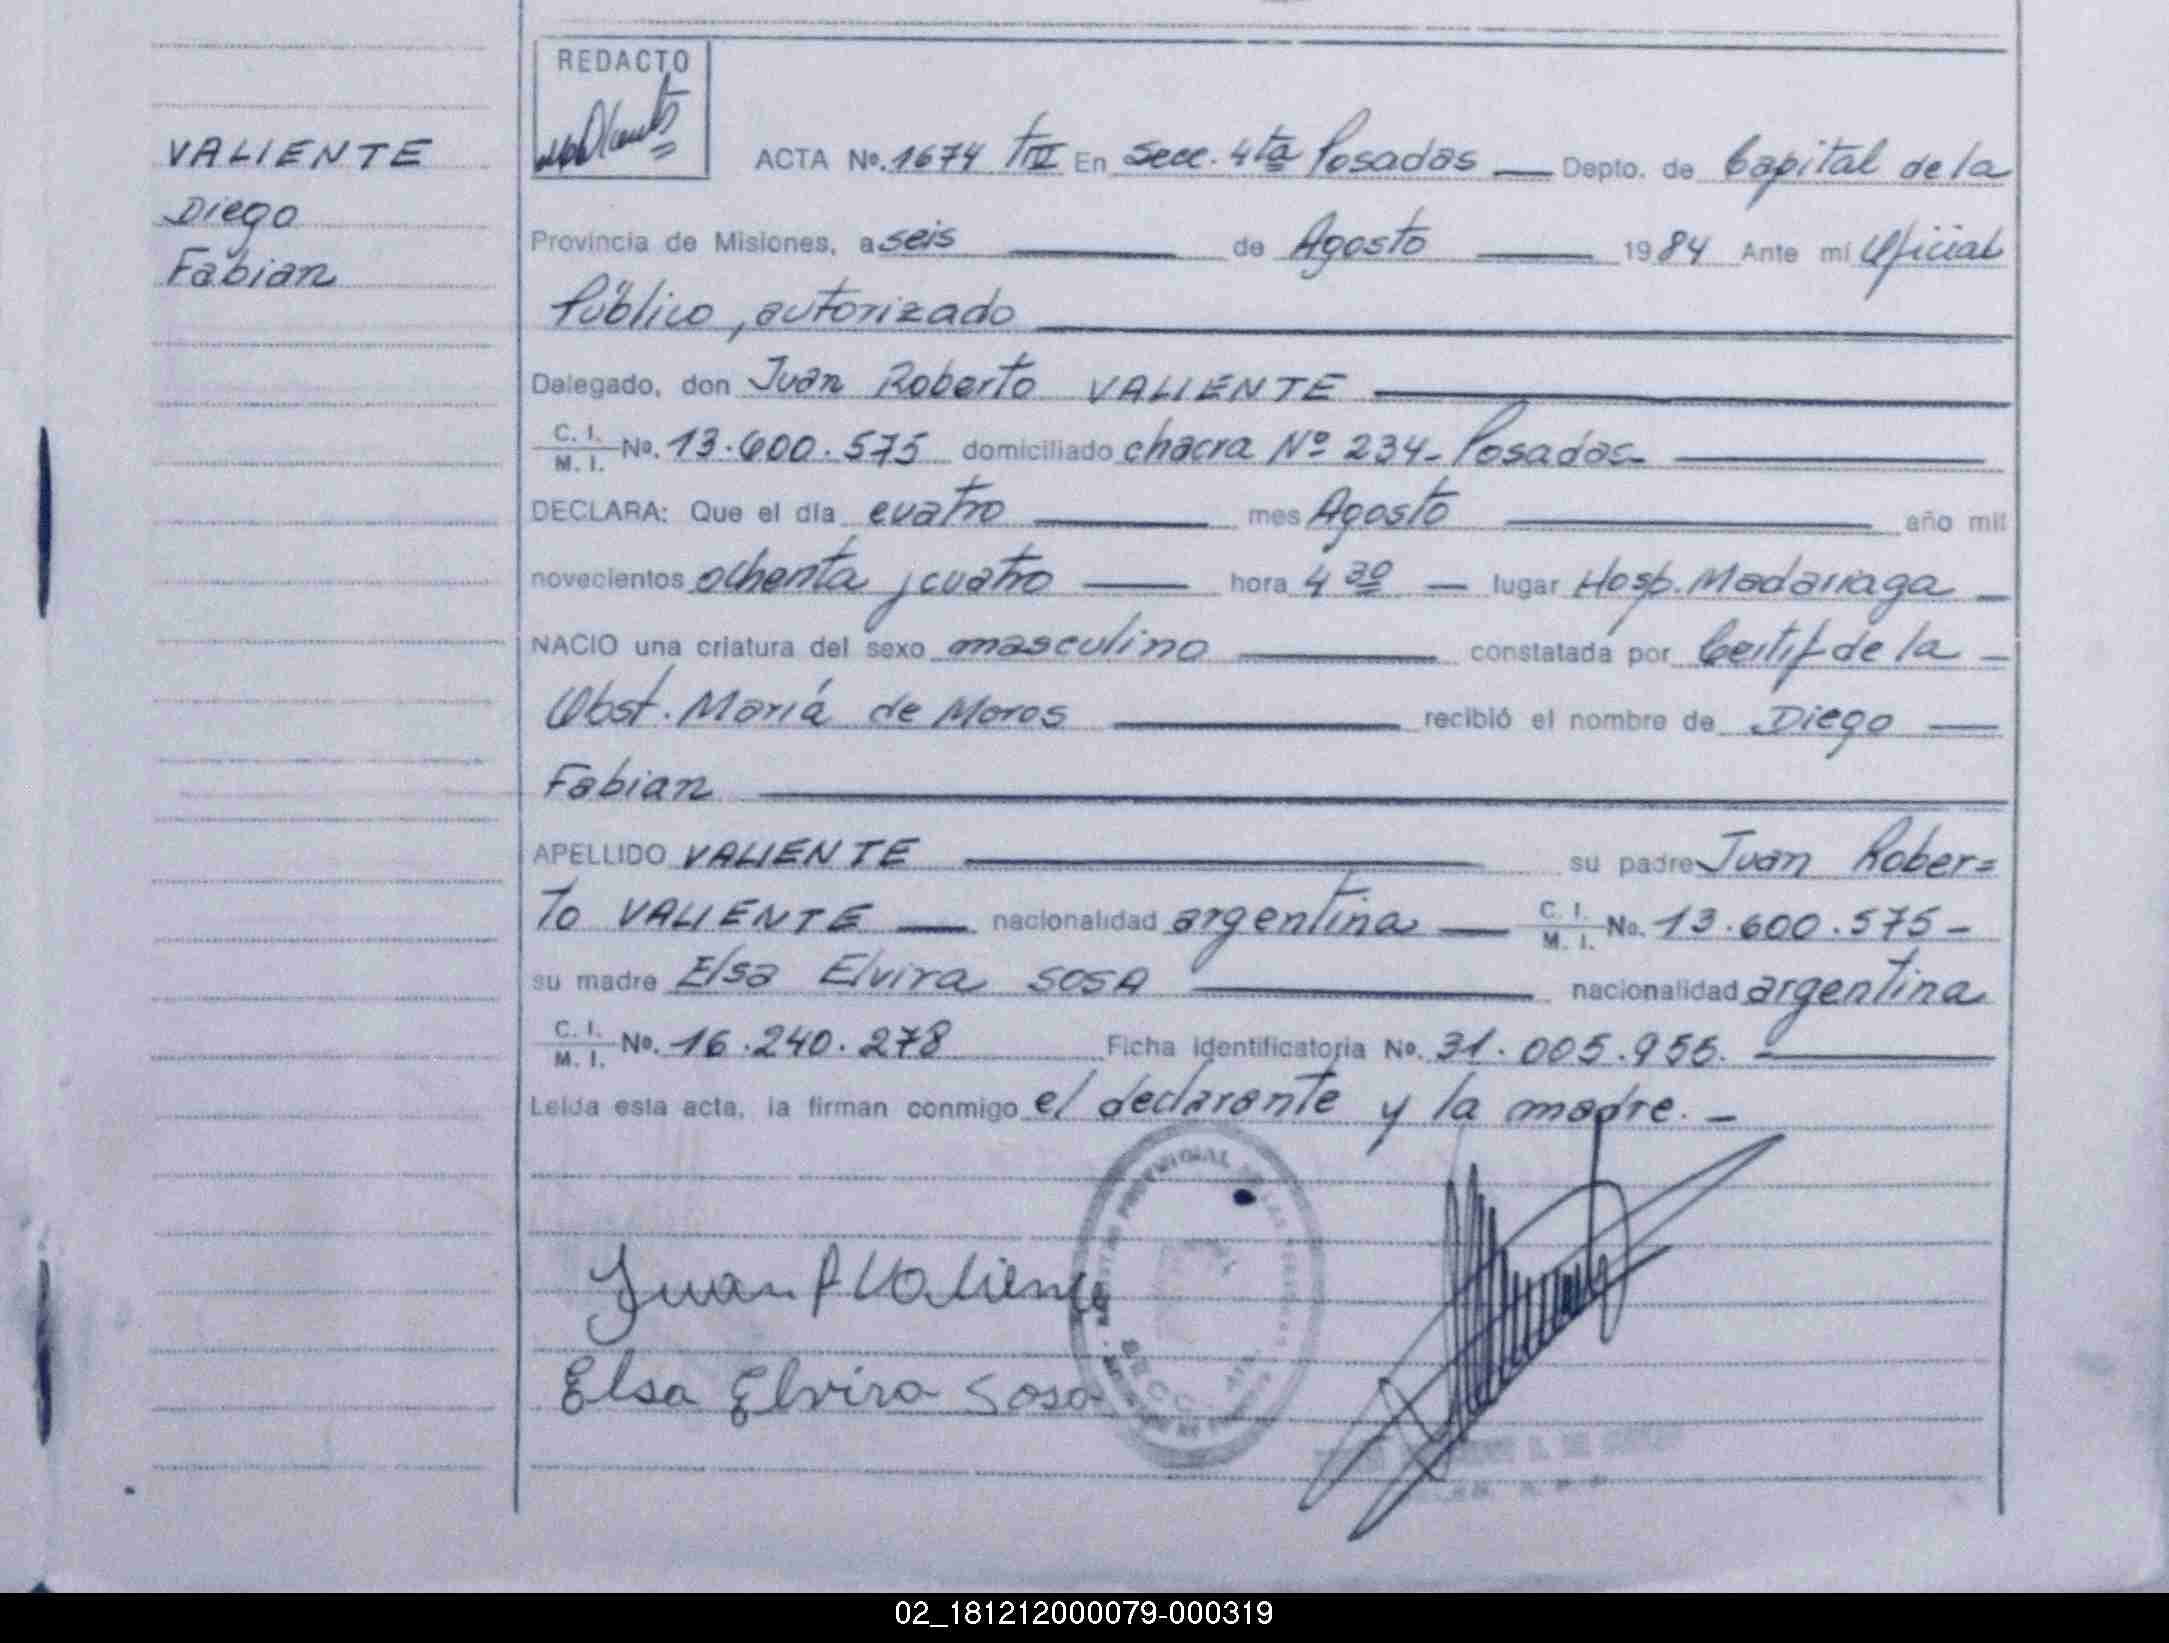 REDACTO
VALIENTE
Diego
Fabian
ACTA No. 1674 TIV En Secc. 4ta Posadas — Depto. de Capital de la
Provincia de Misiones, a seis — de Agosto — 1984 Ante mí Oficial
Público, autorizado
Delegado, don Juan Roberto VALIENTE
C. I. / M. I. No. 13.600.575 domiciliado chacra Nº 234- Posadas-
DECLARA: Que el día cuatro — mes Agosto — año mil
novecientos ochenta y cuatro — hora 4 30 — lugar Hosp. Madariaga —
NACIO una criatura del sexo masculino — constatada por Certif de la —
Obst. María de Moros — recibió el nombre de Diego —
Fabian
APELLIDO VALIENTE — su padre Juan Rober=
to VALIENTE — nacionalidad argentina — C. I. / M. I. No. 13.600.575-
su madre Elsa Elvira SOSA — nacionalidad argentina
C. I. / M. I. No. 16.240.278 Ficha identificatoria No. 31.005.956. —
Leída esta acta, la firman conmigo el declarante y la madre. —
Juan R Valiente
Elsa Elvira Sosa
02_181212000079-000319